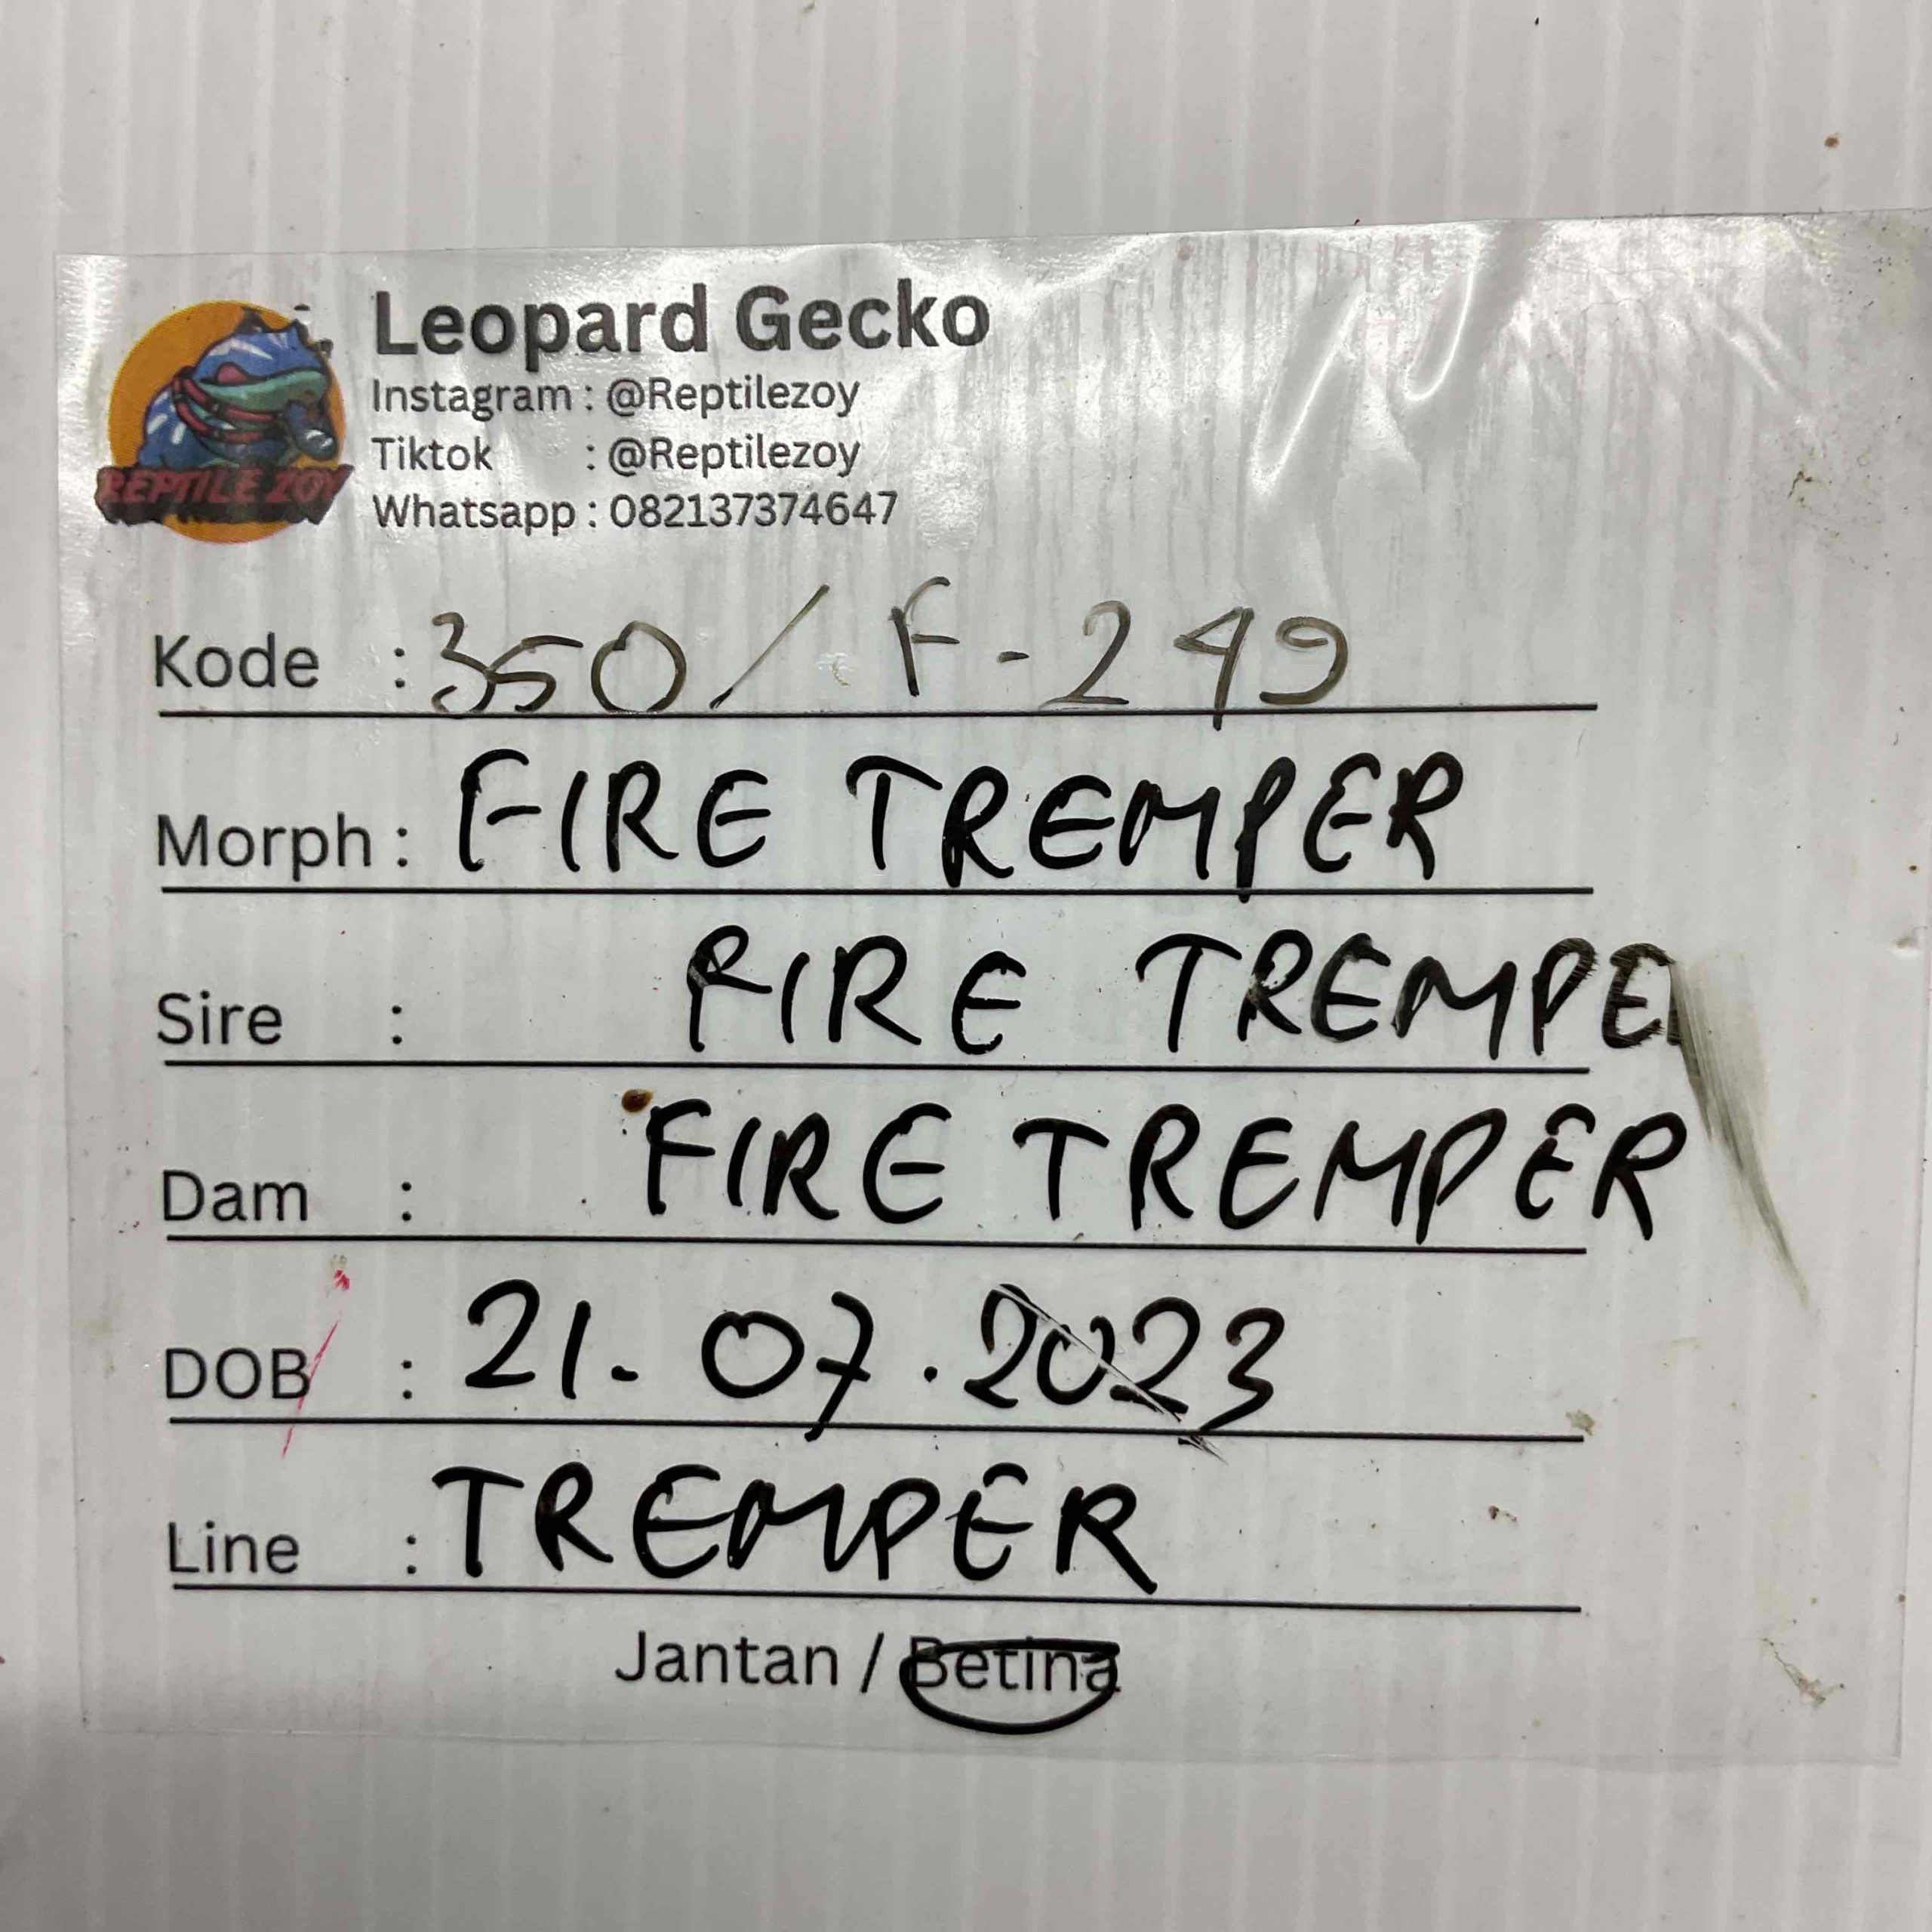 REPTILE ZOY
Leopard Gecko
Instagram : @Reptilezoy
Tiktok : @Reptilezoy
Whatsapp : 082137374647
Kode : 350 / F - 249
Morph : FIRE TREMPER
Sire : FIRE TREMPE
Dam : FIRE TREMPER
DOB : 21. 07 . 2023
Line : TREMPER
Jantan / Betina